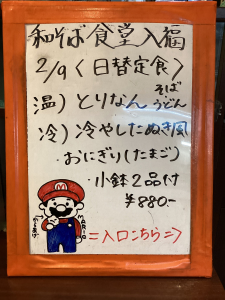 和そば食堂入福
2/9〈日替定食〉
温)とりなん そば うどん
冷)冷やしたぬき風
・おにぎり(たまご)
・小鉢2品付
¥880-
M
MARIO
=入口こちら=>